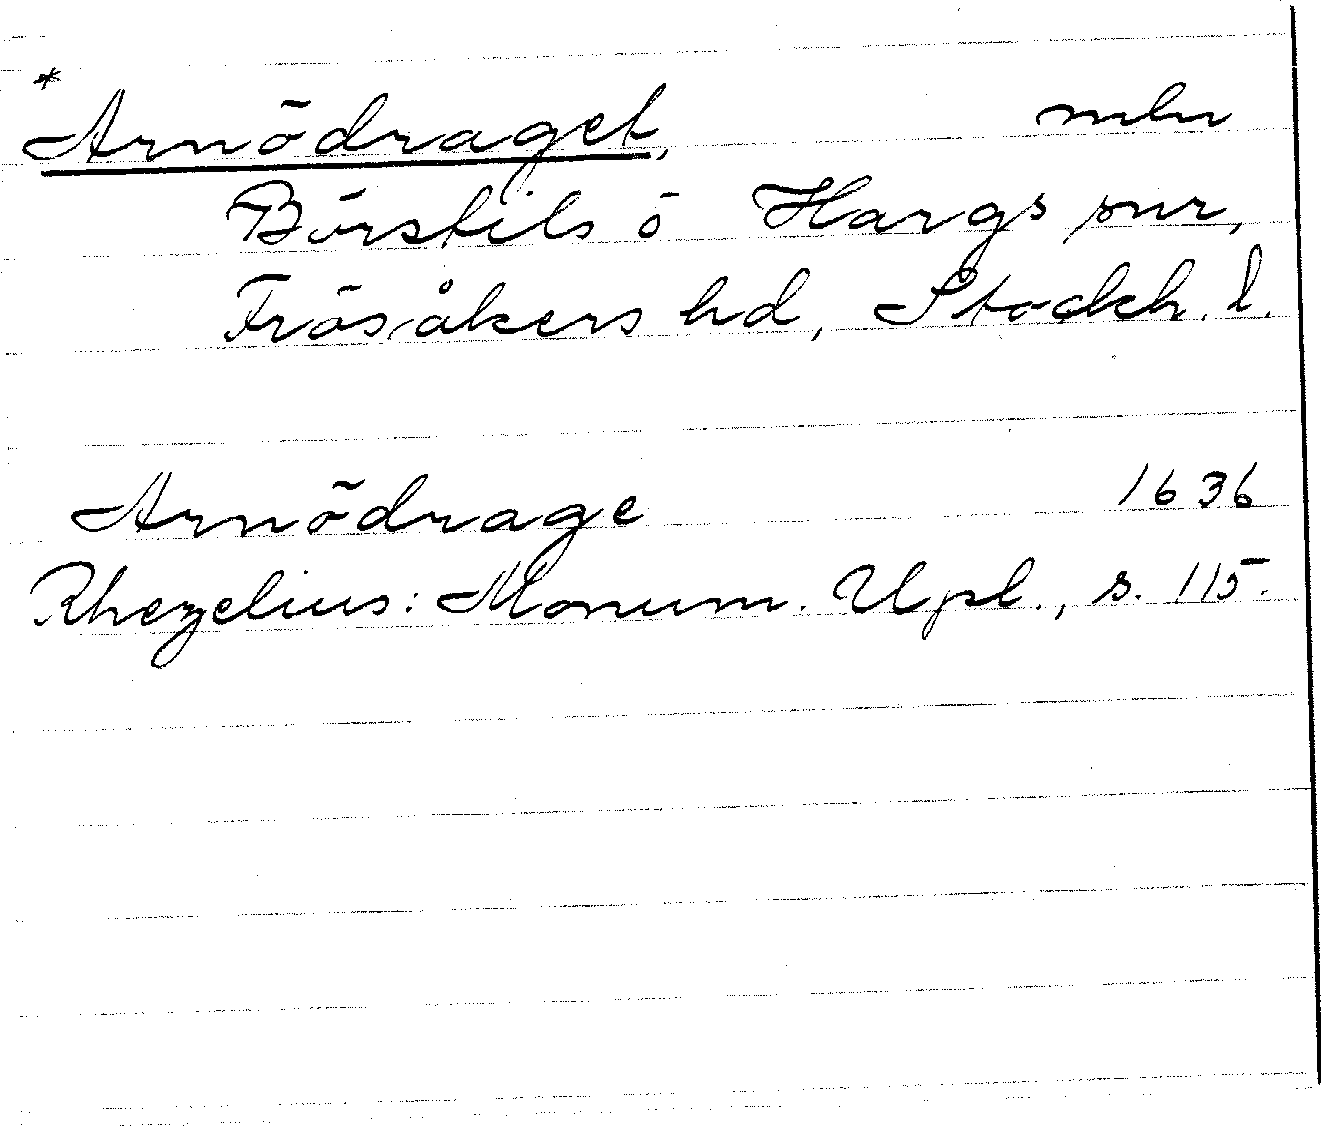 *
Arnödraget, mln
Börstils o Hargs snr,
Frösåkers hd, Stockh. l.
Arnödrage 1636
Rhezelius: Monum. Upl., s. 115.